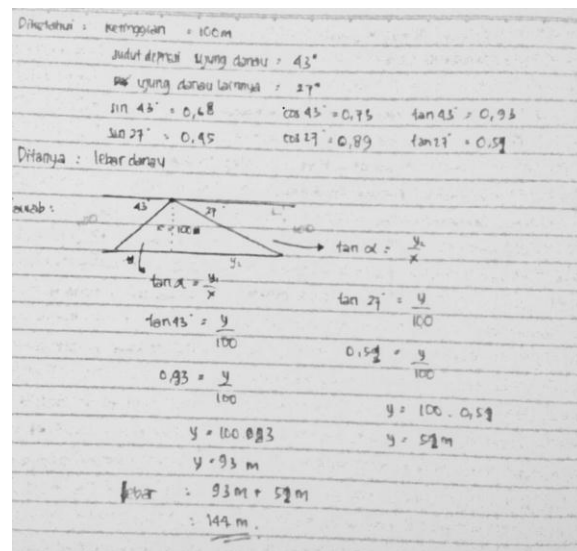 Diketahui : Ketinggian = 100 m
sudut depresi ujung danau = 43°
ujung danau lainnya = 27°
sin 43° = 0,68 cos 43° = 0,73 tan 43° = 0,93
sin 27° = 0,45 cos 27° = 0,89 tan 27° = 0,51
Ditanya : lebar danau
Jawab :
43° 27°
x = 100 m
y₂
tan α = y₂/x
tan α = y₁/x
tan 27° = y/100
tan 43° = y/100
0,51 = y/100
0,93 = y/100
y = 100 . 0,51
y = 100 0,93
y = 51 m
y = 93 m
lebar : 93 m + 51 m
: 144 m.